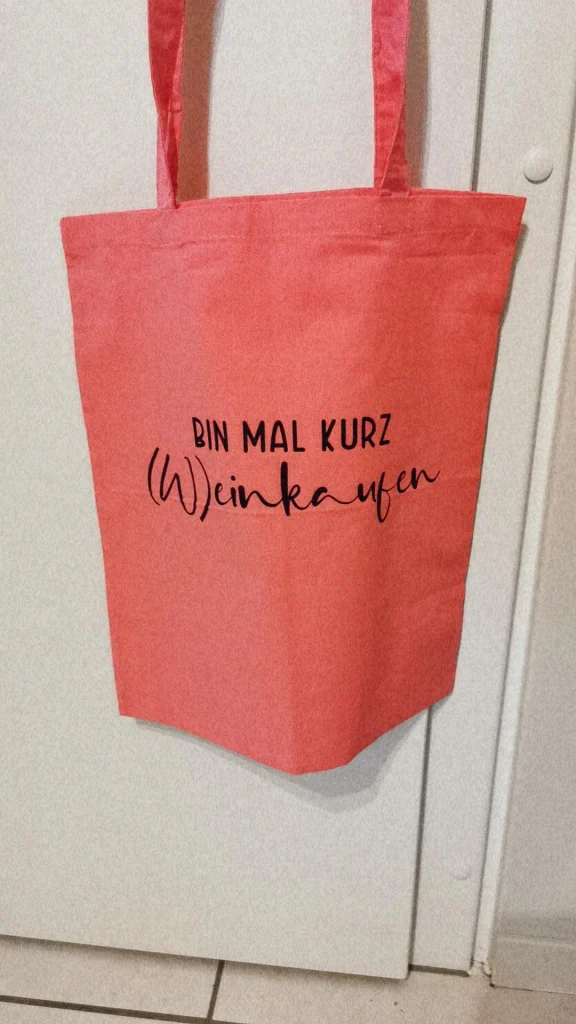 BIN MAL KURZ
(W)einkaufen